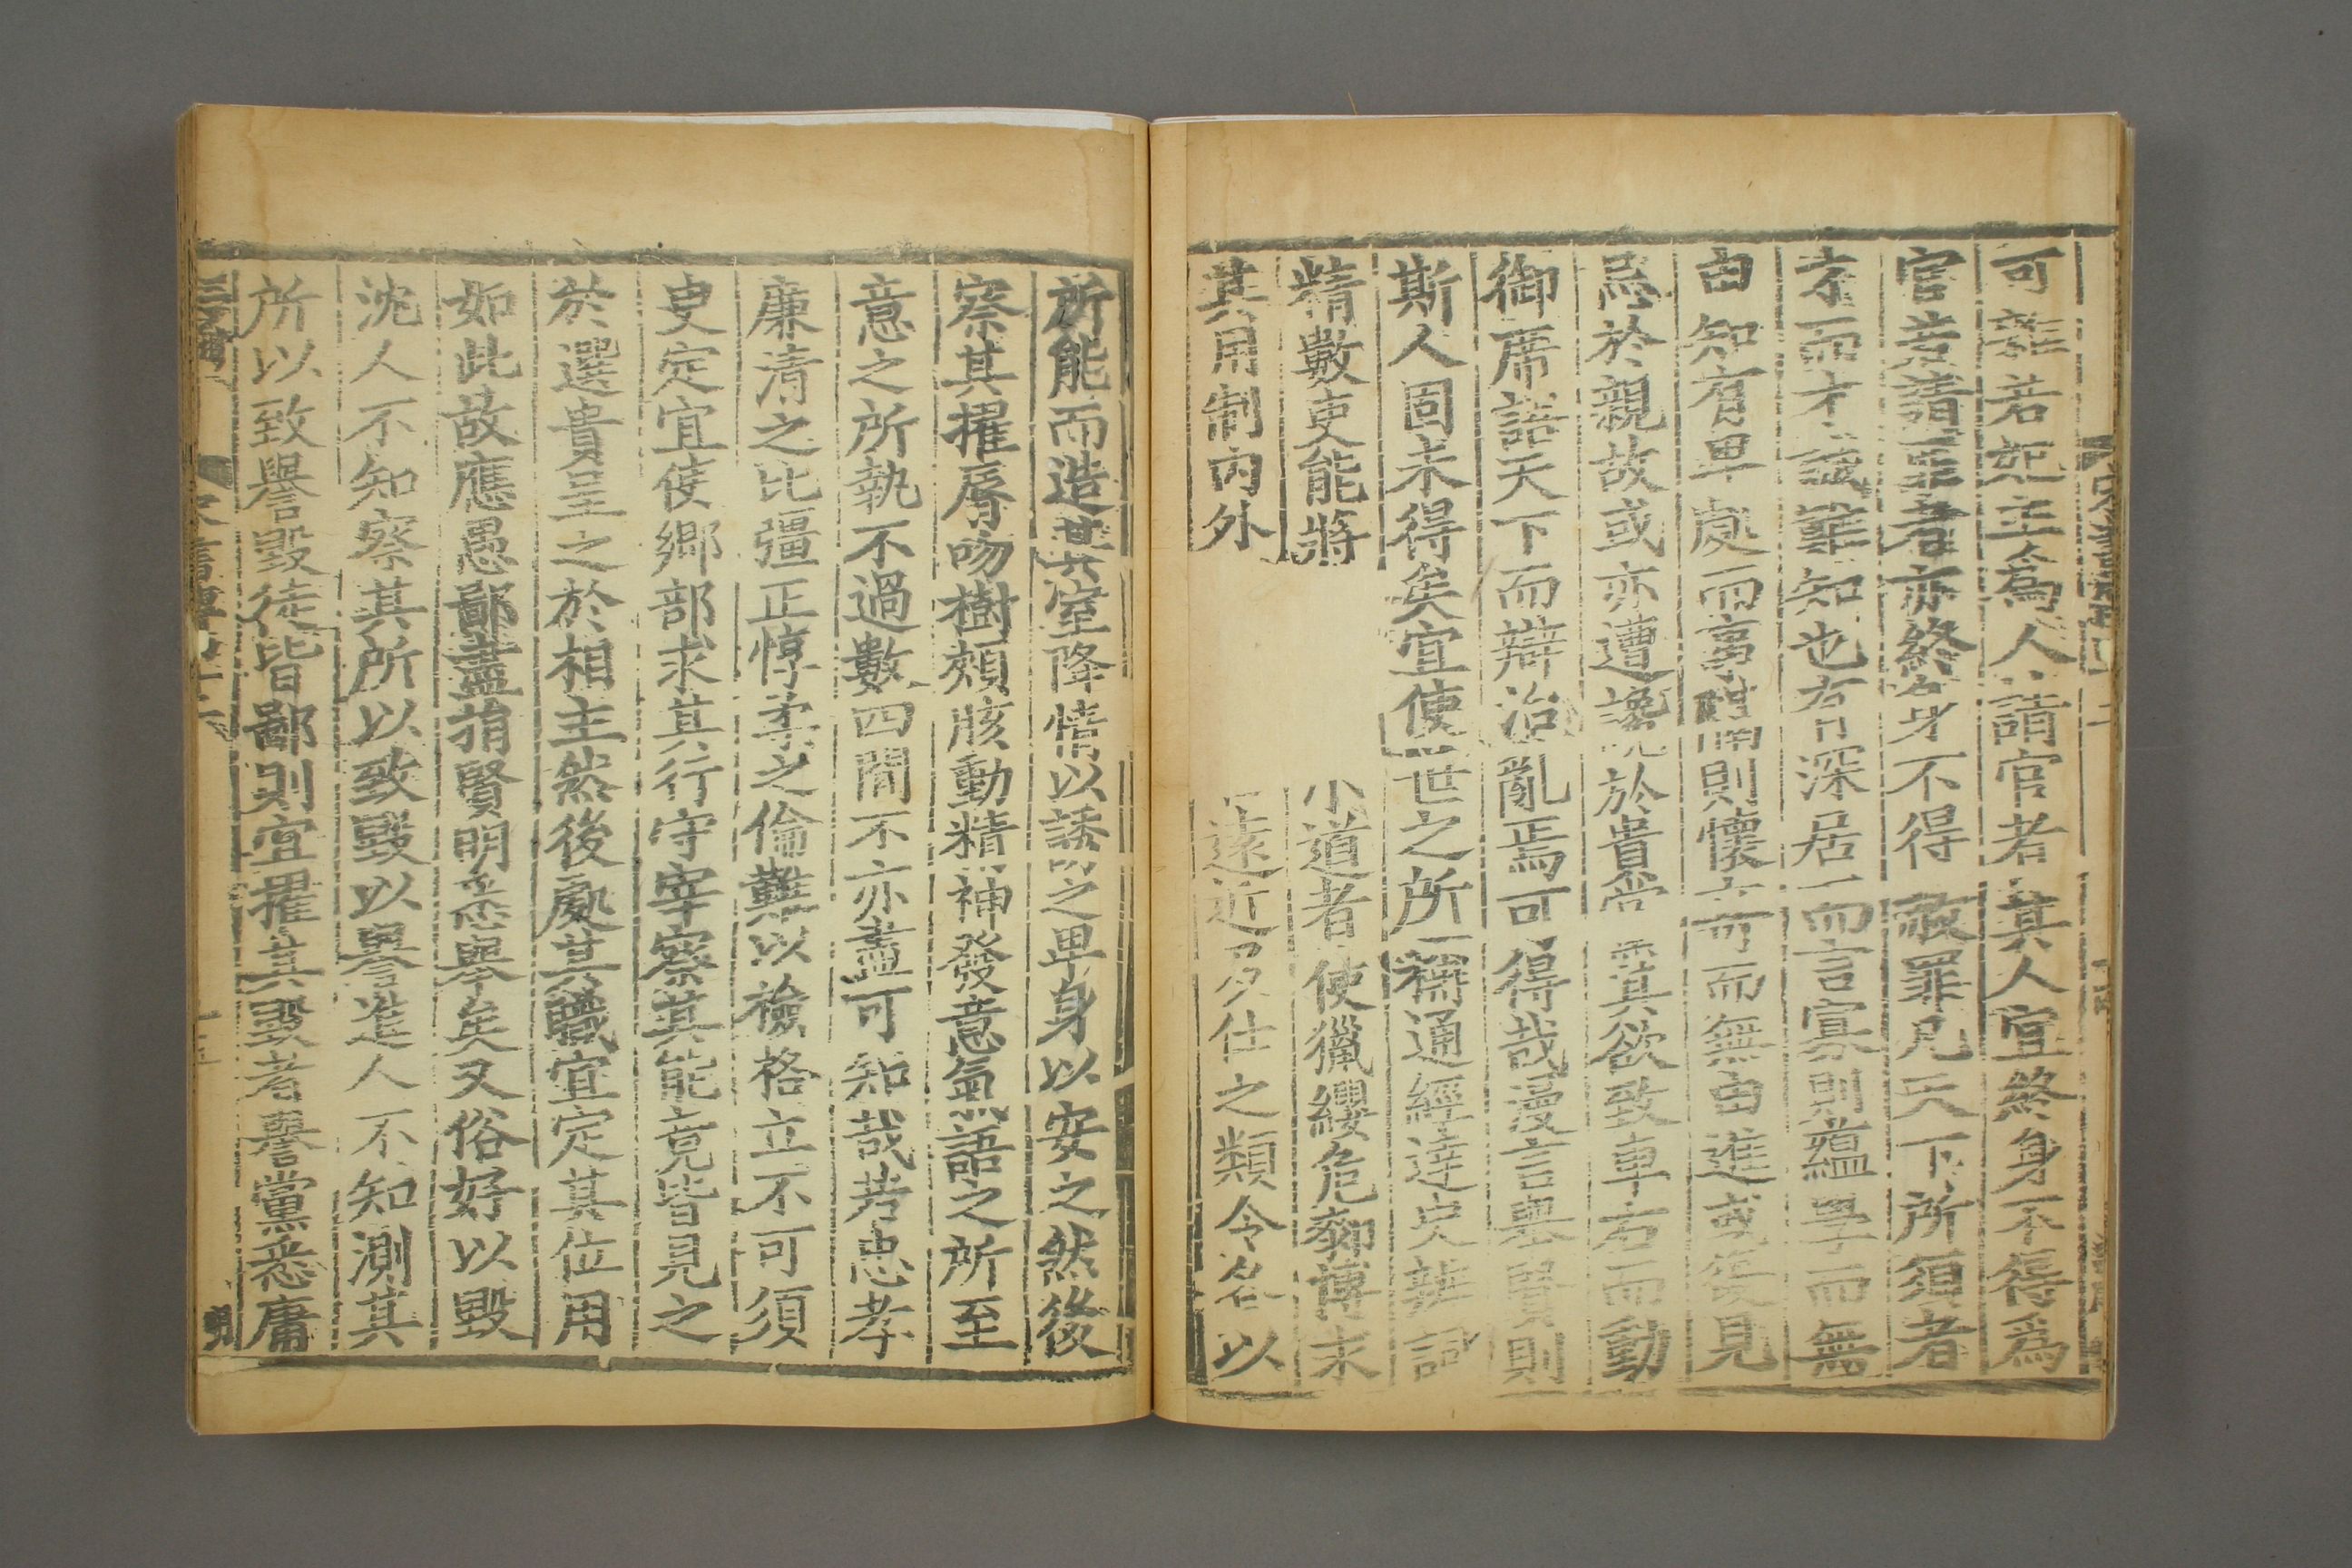 可 若 主爲人請官者其人宜終身不得爲
官若請 者亦終身不得 罪凡天下所須者
才而才誠難知也有深居而言寡則蘊學而無
由知有卑處而 則懷 而無由進或 見
忌於親故或亦遭讒 於貴 其欲致車右而動
御席語天下而辯治亂焉可得哉漫言 則
斯人固未得矣宜使世之所稱通經達史辭詞
精數吏能將 小道者使獵纓危 博求
其用制内外 遠近 仕之類令各以
所能而造其室降情以誘之卑身以安之然後
察其擢脣吻樹頰胲動精神發意氣語之所至
意之所執不過數四間不亦盡可知哉若忠孝
廉清之比彊正惇柔之倫難以檢格立不可須
史定宜使鄉部求其行守宰察其能竟皆見之
於選貴呈之於相主然後處其職宜定其位用
如此故應愚鄙盡捐賢明悉舉矣又俗好以毀
沈人不知察其所以致毀以譽進人不知測其
所以致譽毀徒皆鄙則宜擢其毀者譽黨悉庸
宋書傳四十二